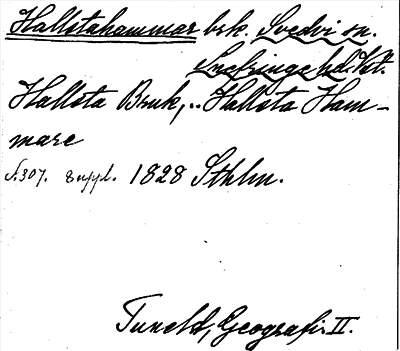 Hallstahammar brk. Svedvi sn.
Snefringe hd. Vstl.
Hallsta Bruk, .. Hallsta Ham-
mare
S. 307. suppl. 1828 Sthlm.
Tuneld, Geografi II.